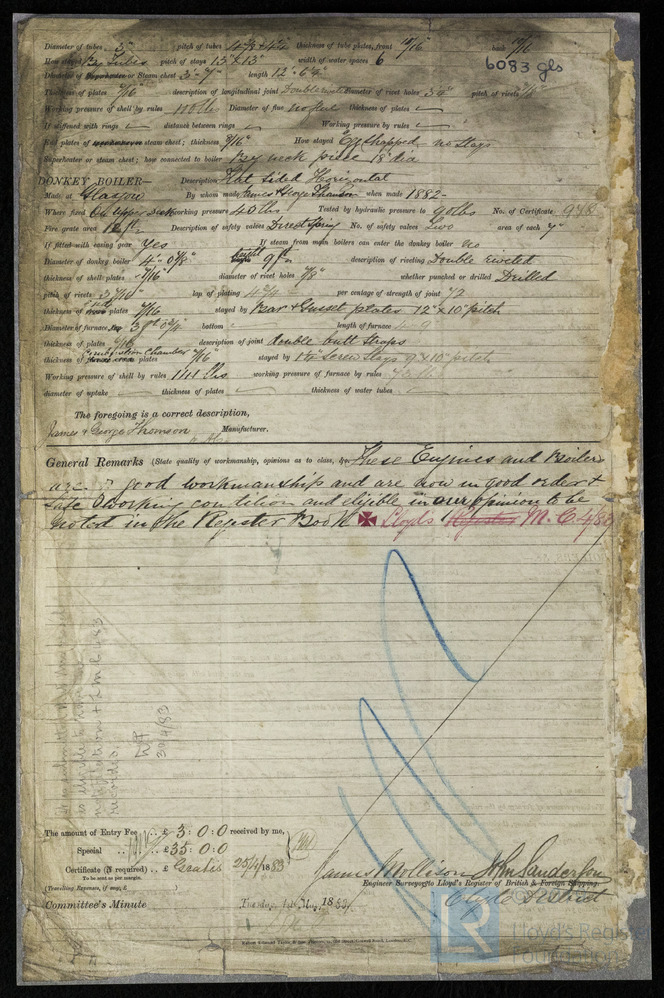 Diameter of tubes 3" pitch of tubes 4 3/8 x 4 1/4 thickness of tube plates, front 15/16" back 13/16
How stayed By Tubes pitch of stays 13" x 13" width of water spaces 6
6083 gls
Diameter of Superheater or Steam chest 3'-7" length 12'-6
Thickness of plates 7/16 description of longitudinal joint Double Diameter of rivet holes 3/4" pitch of rivets
Working pressure of shell by rules 110 lbs Diameter of flue no flue thickness of plates
If stiffened with rings distance between rings Working pressure by rules
End plates of steam chest; thickness 9/16" How stayed Egg shapped, no stays
Superheater or steam chest; how connected to boiler By neck piece 18" dia
DONKEY BOILER— Description Flat sided Horizontal
Made at Glasgow By whom made James & George Thomson when made 1882-
Where fixed On upper deck working pressure 40 lbs Tested by hydraulic pressure to 90 lbs No. of Certificate 978
Fire grate area 12 ft Description of safety valves Direct Spring No. of safety valves two area of each 7"
If fitted with easing gear Yes If steam from main boilers can enter the donkey boiler no
Diameter of donkey boiler 4'- 0 7/8" height 9 ft description of riveting Double riveted
thickness of shell plates 7/16" diameter of rivet holes 7/8" whether punched or drilled Drilled
pitch of rivets 3 7/16" lap of plating 4 3/4 per centage of strength of joint 72
thickness of plates 7/16 stayed by Bar & Gusset plates 12" x 10" pitch
Diameter of furnace, top 3 ft 0 3/4" bottom length of furnace 4 9
thickness of plates description of joint double butt straps
thickness of Combustion Chamber plates 7/16" stayed by Screw stays 9 x 10" pitch
Working pressure of shell by rules 144 lbs working pressure of furnace by rules
diameter of uptake thickness of plates thickness of water tubes
The foregoing is a correct description,
James & George Thomson Manufacturer.
General Remarks (State quality of workmanship, opinions as to class, &c. These Engines and Boilers
are of good workmanship and are now in good order &
safe working condition and eligible in our opinion to be
noted in the Register Book ✠ Lloyds Register M. C. 4/83
30/4/83
The amount of Entry Fee .. £ 3 : 0 : 0 received by me,
Special .. £ 35 : 0 : 0
Certificate (if required) .. £ Gratis 25/4/1883
To be sent as per margin.
(Travelling Expenses, if any, £ )
James Mollison John Sanderson
Engineer Surveyors to Lloyd's Register of British & Foreign Shipping.
Clyde District
Committee's Minute Tuesday, 1st May, 1883
LR
Lloyd's Register
Foundation